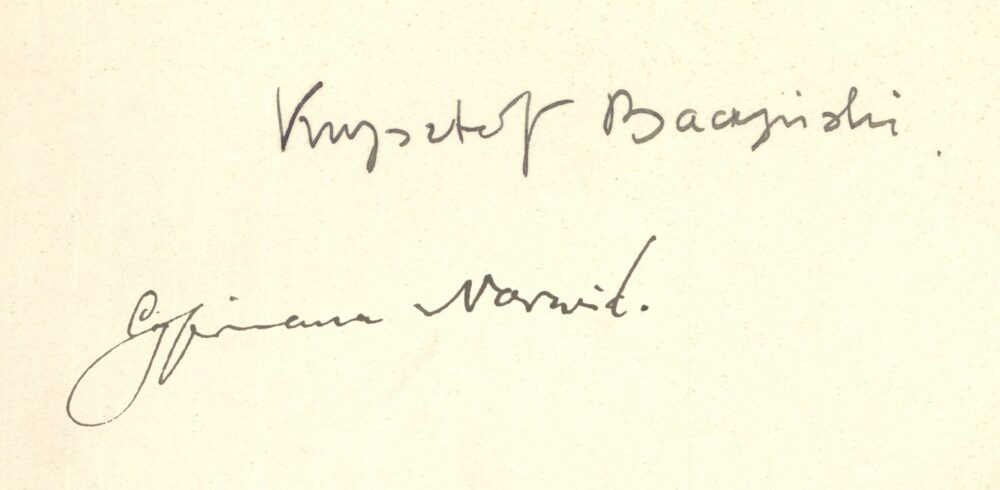 Krzysztof Baczyński
Cypriana Norwid.